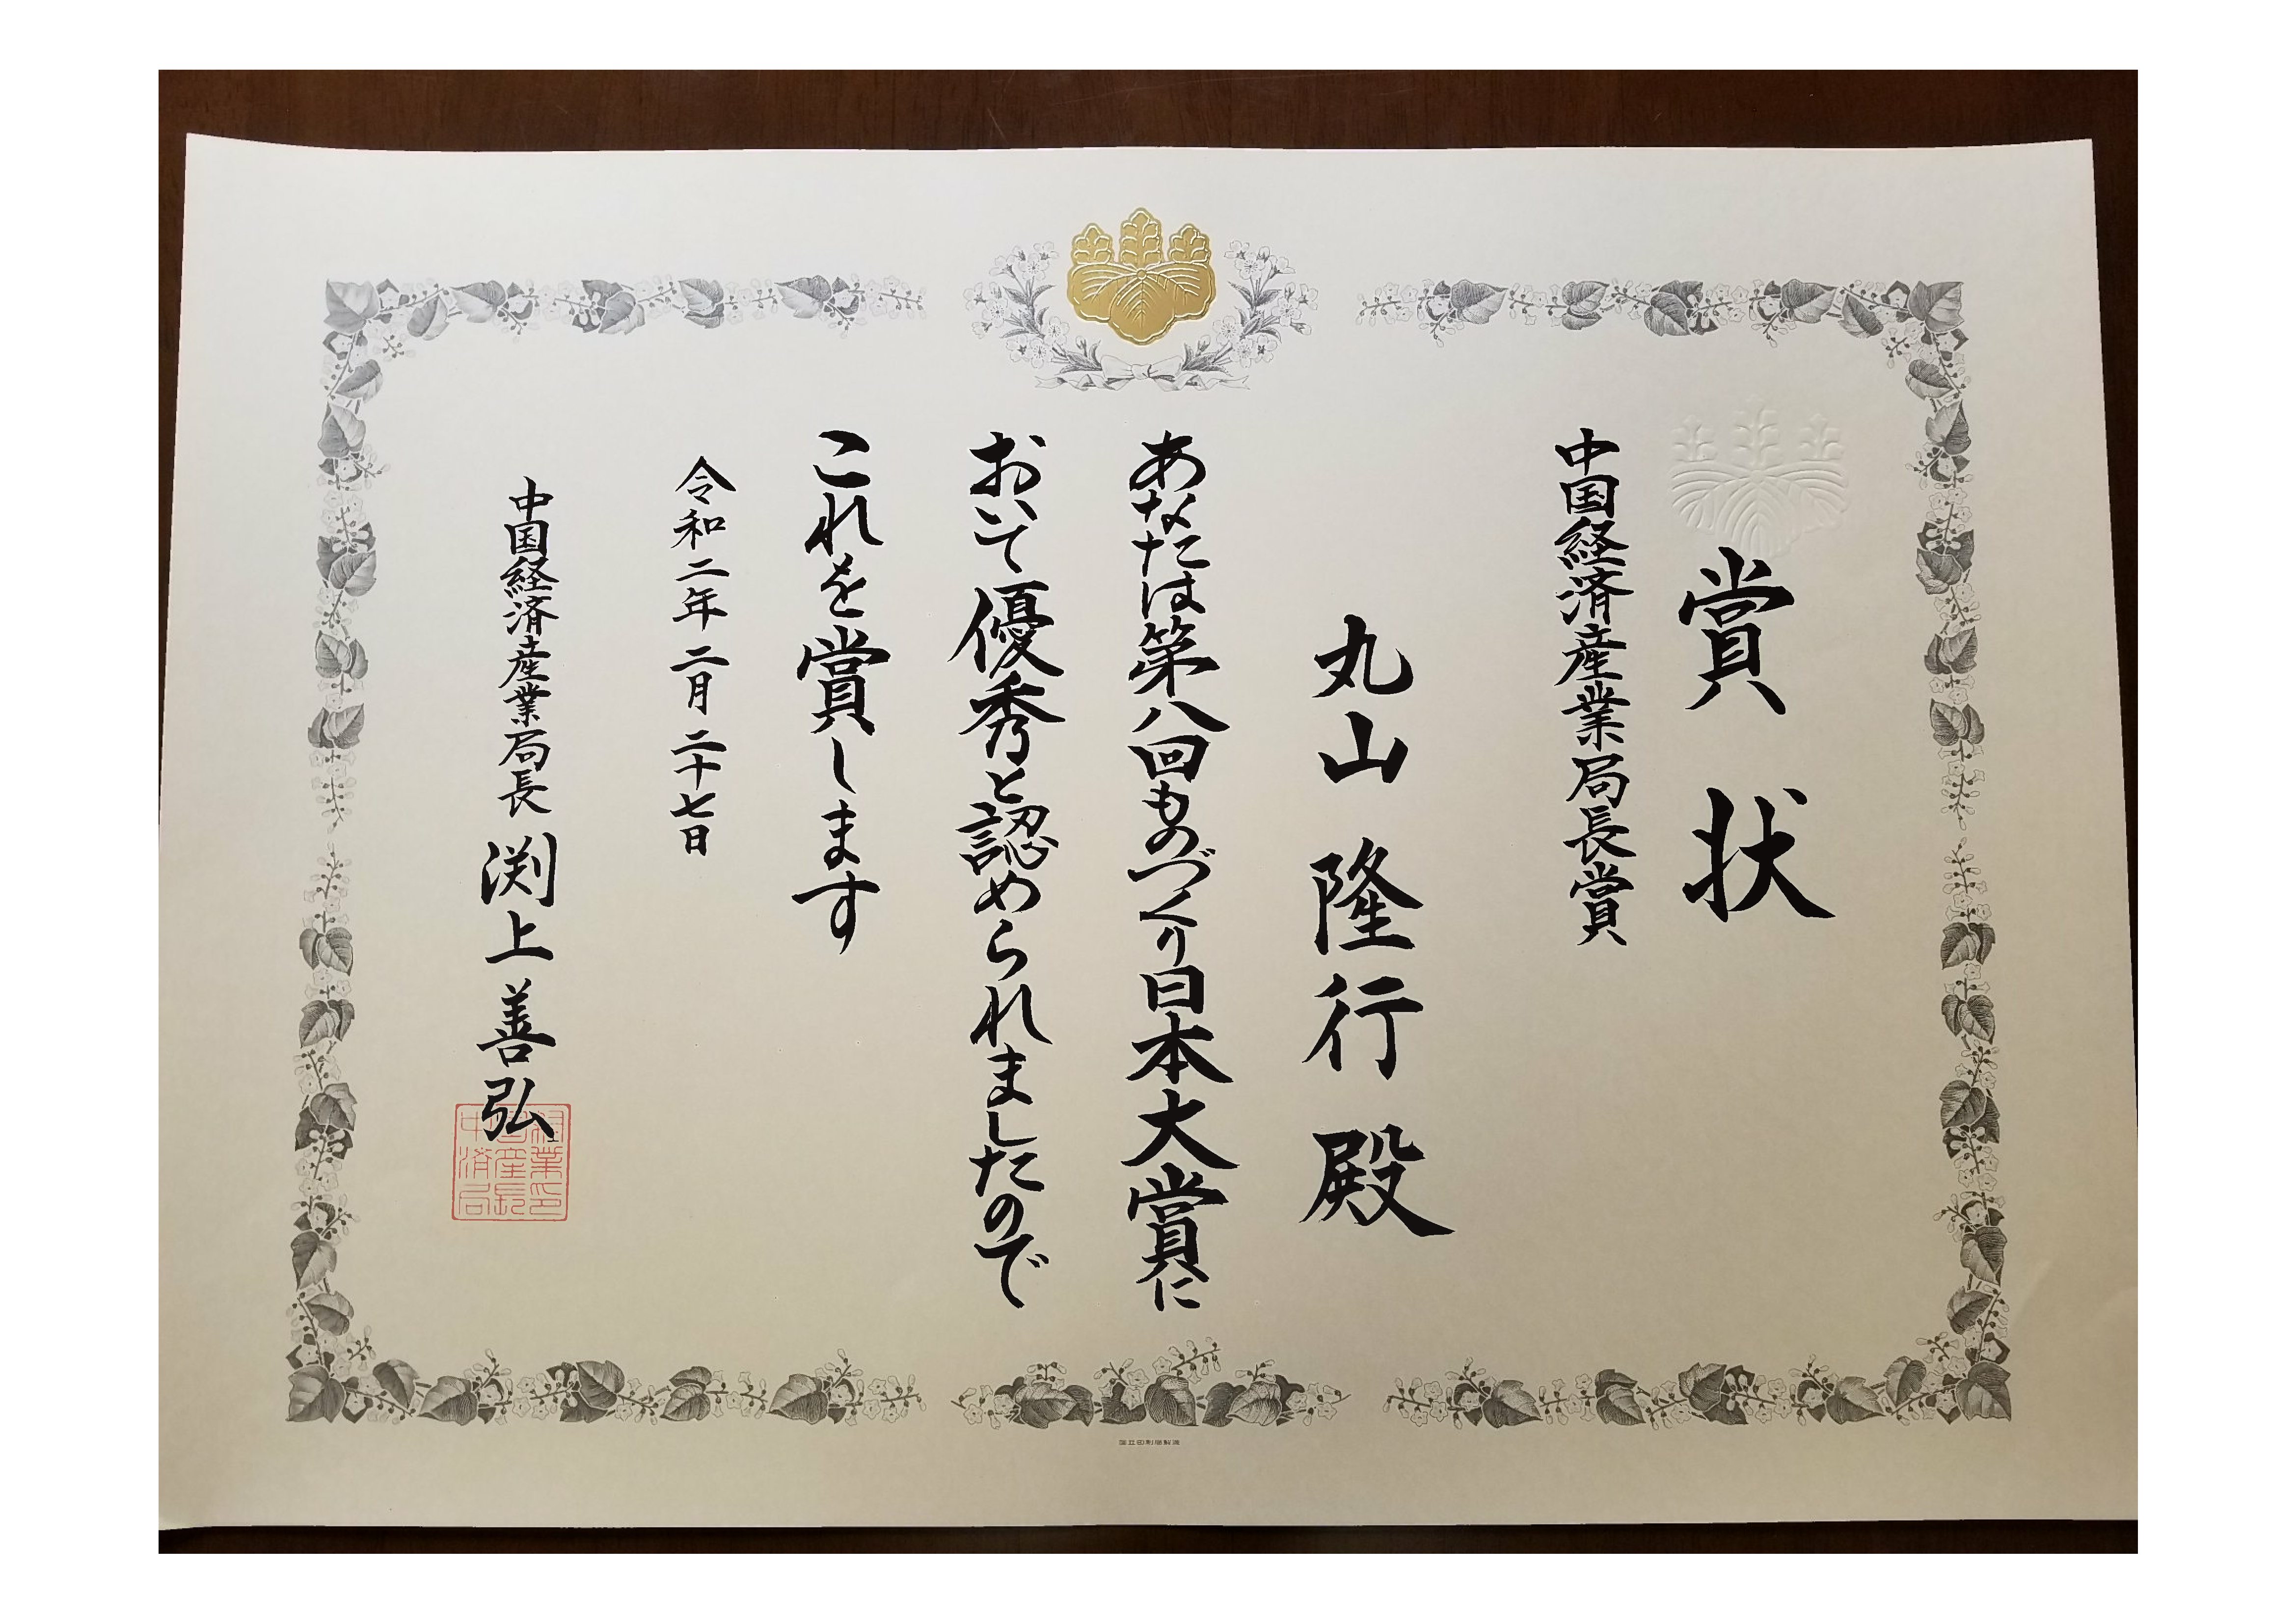 賞状
中国経済産業局長賞
丸山隆行殿
あなたは第八回ものづくり日本大賞に
おいて優秀と認められましたので
これを賞します
令和二年二月二十七日
中国経済産業局長 渕上善弘
国立印刷局製造